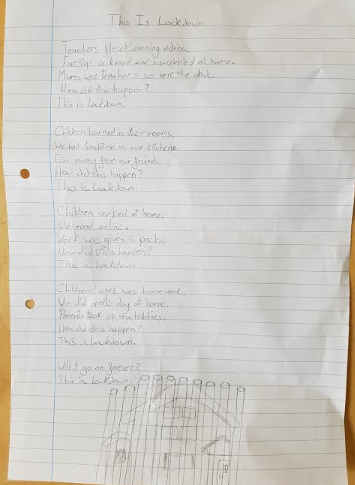 This Is Lockdown
Teachers filmed learning videos.
Family locked and at home.
Mums were teachers so were the dads.
How did this happen?
This is Lockdown.
Children learned in their rooms.
We had lunchtime in our kitchens.
Far away from our friends.
How did this happen?
This is Lockdown.
Children worked at home.
We read online.
Work was given in packs.
How did this happen?
This is Lockdown.
Children work was homework.
We did sports day at home.
Parents took up new hobbies.
How did this happen?
This is Lockdown.
Will it go on forever?
This is Lockdown.